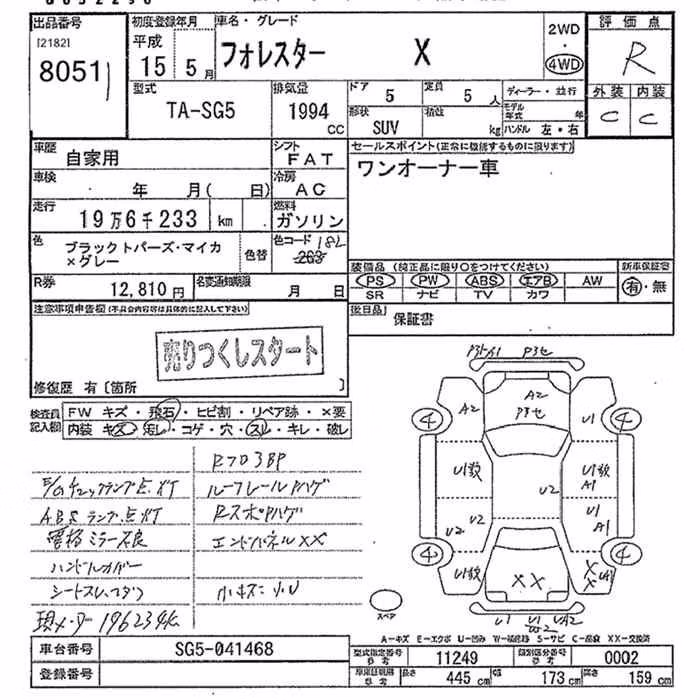 出品番号
[2182]
8051
初度登録年月
平成
15 5月
車名・グレード
フォレスター X
2WD
・
4WD
評価点
R
外装 内装
C C
型式
TA-SG5
排気量
1994
CC
ドア 5
定員 5 人
形状
SUV
積載
kg
ディーラー・並行
モデル年式 年
ハンドル 左・右
車歴
自家用
シフト
FAT
セールスポイント(正常に機能するものに限ります)
ワンオーナー車
車検
年 月( 日)
冷房
AC
走行
19万6千233 km
燃料
ガソリン
色
ブラックトパーズ・マイカ
×グレー
色替
色コード 18L
263
装備品 (純正品に限り○をつけてください)
新車保証書
PS PW ABS エアB AW
有・無
SR ナビ TV カワ
R券
12,810円
名変通知期限
月 日
後日品
保証書
注意事項申告欄(不具合内容等は具体的に記入して下さい)
売りつくしスタート
修復歴 有 [箇所 ]
検査員
記入欄
FW キズ・飛石・ヒビ割・リペア跡・×要
内装 キズ・汚し・コゲ・穴・スレ・キレ・破レ
E/Gチェックランプ点灯
ルーフレールハゲ
ABSランプ点灯
Rスポハゲ
電格ミラー不良
エンドパネルXX
ハンドルカバー
小キズ 小U
現メーター196234K
A2
A2
U1
U1
A1
U2
U1
A1
U2
U2
XX
4
4
4
4
スペア
A-キズ E-エクボ U-凹み W-補修跡 S-サビ C-腐食 XX-交換済
車台番号
SG5-041468
登録番号
型式指定番号
参考
11249
類別区分番号
参考
0002
長さ 445 cm
幅 173 cm
高さ 159 cm